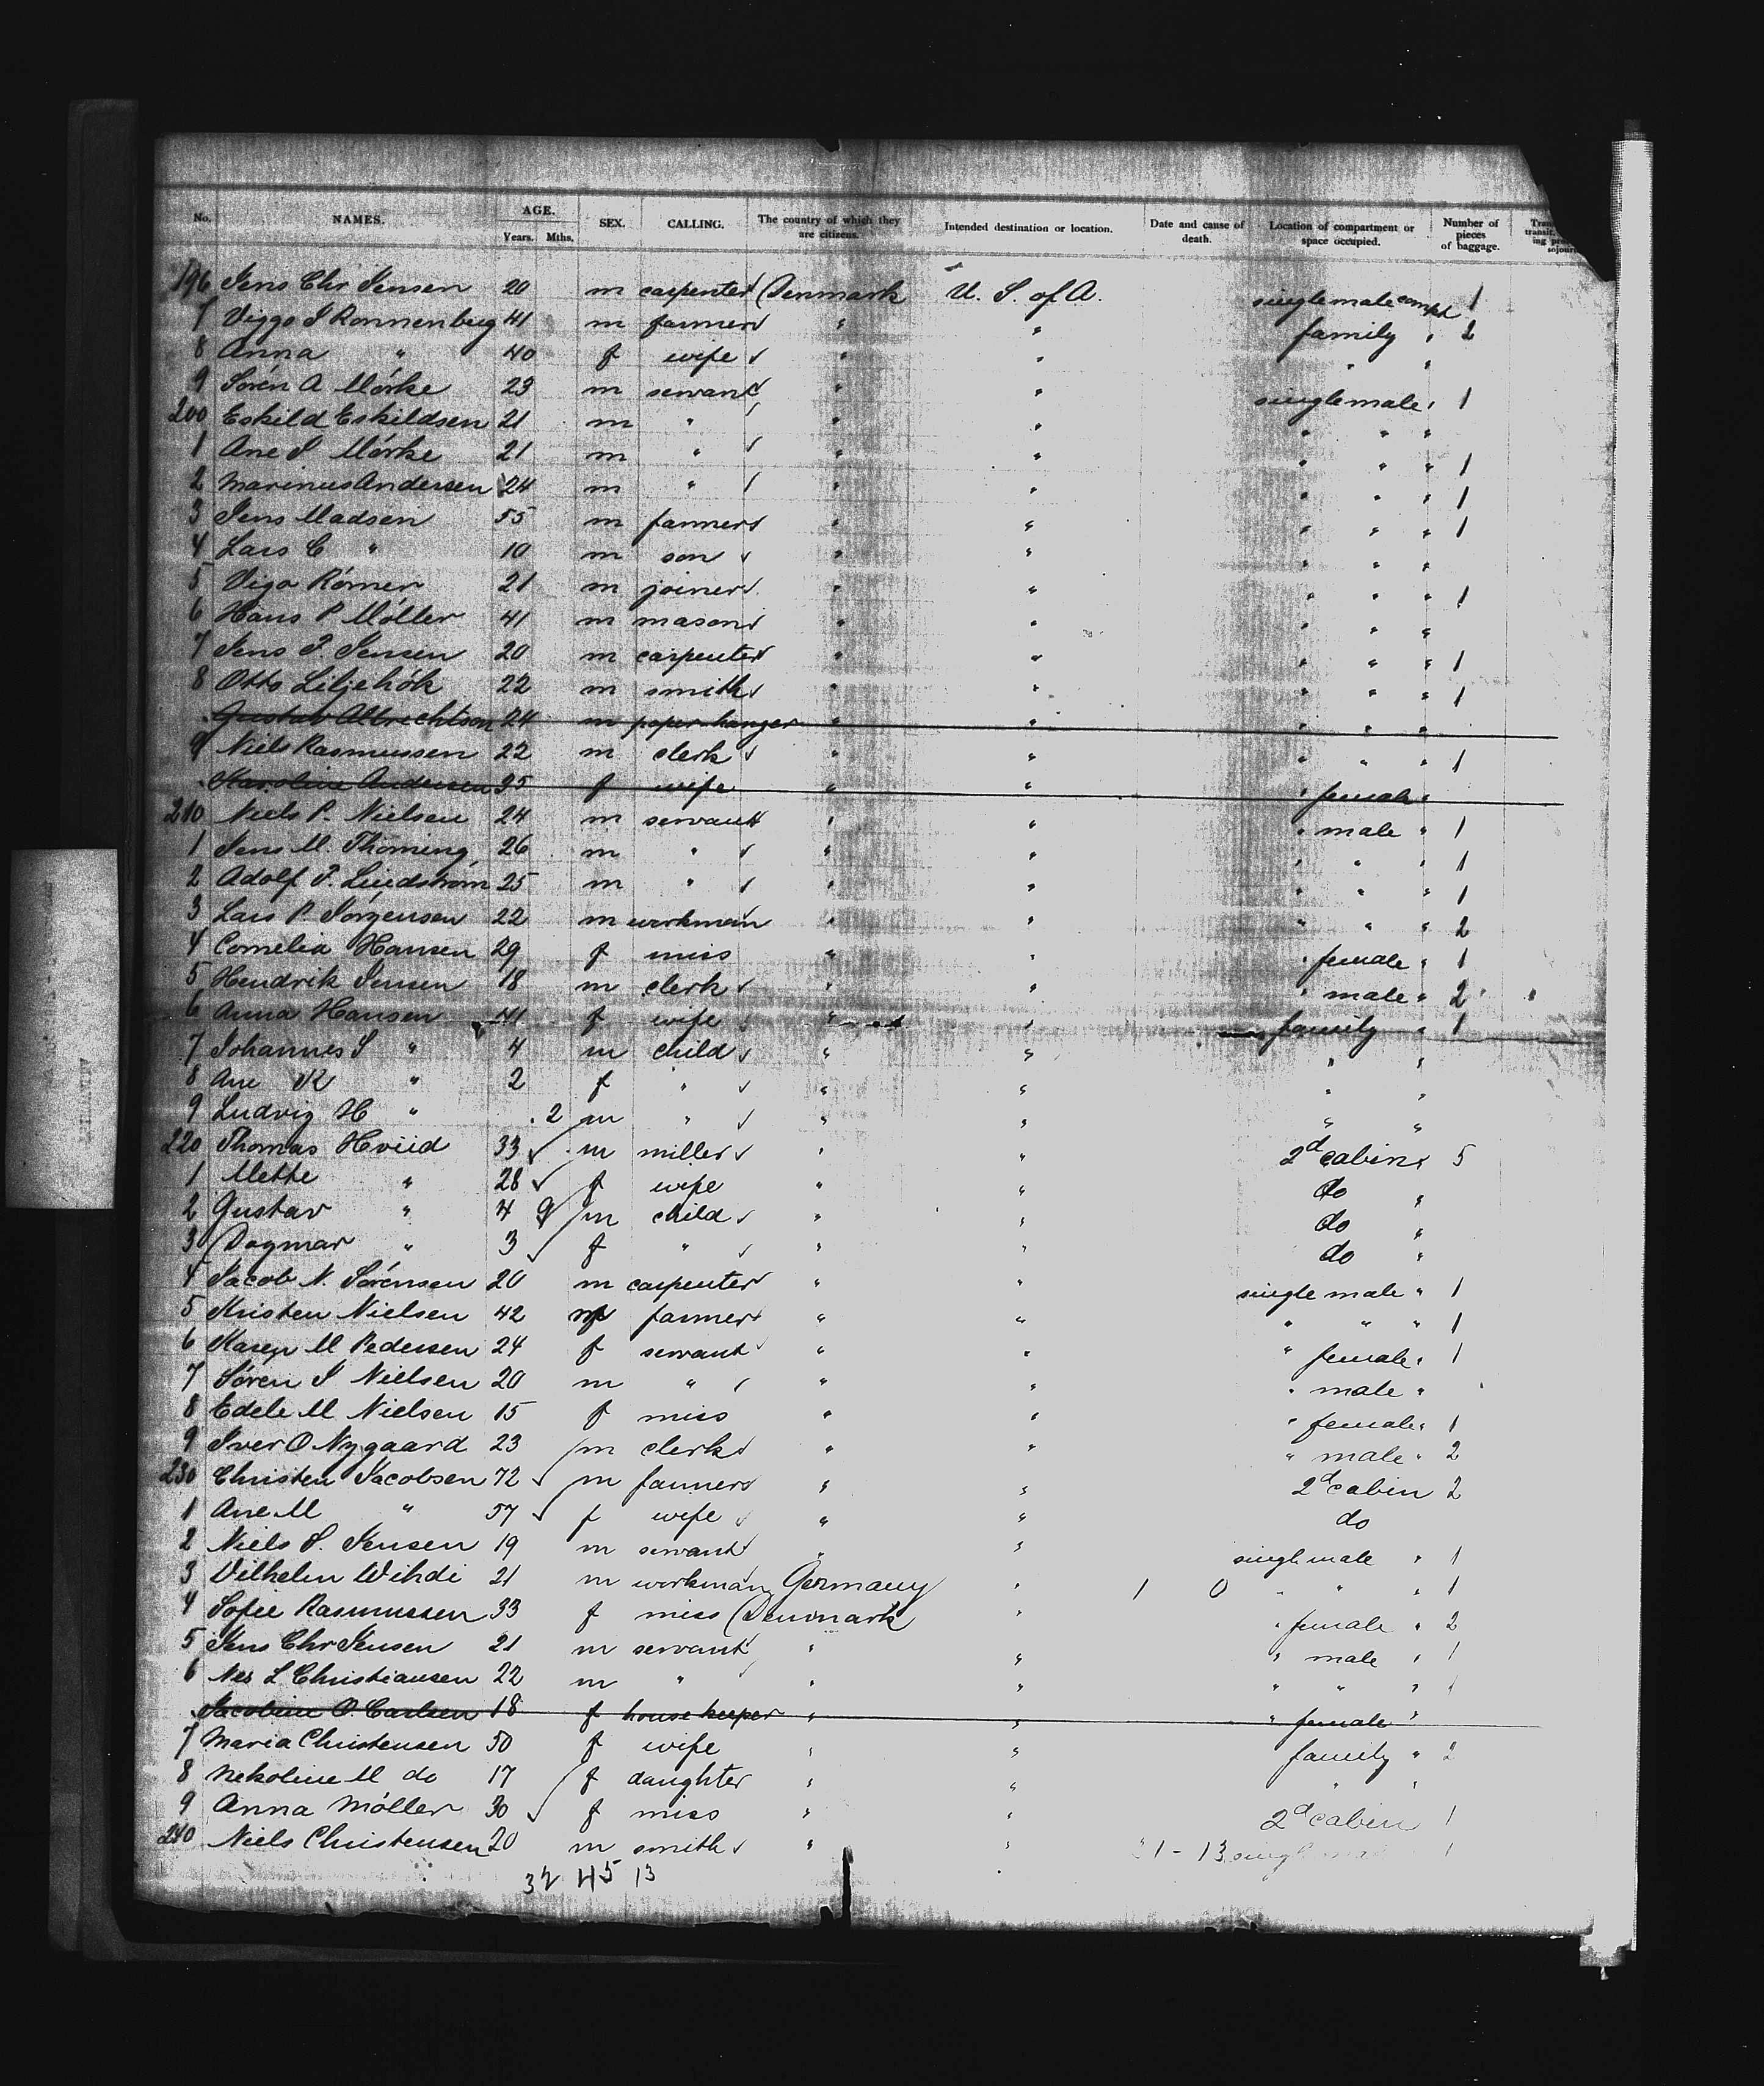 No. NAMES. AGE. Years. Mths. SEX. CALLING. The country of which they are citizens. Intended destination or location. Date and cause of death. Location of compartment or space occupied. Number of pieces of baggage.
196 Jens Chr Jensen 20 m carpenter Denmark U. S. of A. single male compt 1
7 Viggo J Ronnenberg 41 m farmer " " family " 2
8 Anna " 40 f wife " " " "
9 Sören A Mörke 23 m servant " " single male " 1
200 Eskild Eskildsen 21 m " " " " " "
1 Ane J Mörke 21 m " " " " " " 1
2 Marinus Andersen 24 m " " " " " " 1
3 Jens Madsen 55 m farmer " " " " " 1
4 Lars C " 10 m son " " " " "
5 Vigo Römer 21 m joiner " " " " " 1
6 Hans P Möller 41 m mason " " " " "
7 Jens P. Jensen 20 m carpenter " " " " " 1
8 Otto Liljehök 22 m smith " " " " " 1
Gustav Albrechtson 24 m paperhanger " " " " "
9 Niels Rasmussen 22 m clerk " " " " " 1
Karoline Andersen 25 f wife " " " female "
210 Niels P. Nielsen 24 m servant " " " male " 1
1 Jens M. Thöming 26 m " " " " " " 1
2 Adolf P. Lindström 25 m " " " " " " 1
3 Lars P. Jörgensen 22 m workman " " " " " 2
4 Cornelia Hansen 29 f miss " " " female " 1
5 Hendrik Jensen 18 m clerk " " " male " 2
6 Anna Hansen 41 f wife " " family " 1
7 Johannes S " 4 m child " " " "
8 Ane K " 2 f " " " " "
9 Ludvig H " 2 m " " " " "
220 Thomas Hviid 33 m miller " " 2d cabin " 5
1 Mette " 28 f wife " " do "
2 Gustav " 4 9 m child " " do "
3 Dagmar " 3 f " " " do "
4 Jacob N. Sörensen 20 m carpenter " " single male " 1
5 Kristen Nielsen 42 m farmer " " " " " 1
6 Karen M Pedersen 24 f servant " " " female " 1
7 Sören J Nielsen 20 m " " " " male "
8 Edele M Nielsen 15 f miss " " " female " 1
9 Iver O Nygaard 23 m clerk " " " male " 2
230 Christen Jacobsen 72 m farmer " " 2d cabin 2
1 Ane M " 57 f wife " " do
2 Niels P. Jensen 19 m servant " " single male " 1
3 Vilhelm Wihdi 21 m workman Germany " 1 0 " " " 1
4 Sofie Rasmussen 33 f miss Denmark " " female " 2
5 Jens Chr Jensen 21 m servant " " " male " 1
6 Nes L Christiansen 22 m " " " " " " 1
Jacobine O. Carlsen 18 f housekeeper " " " female "
7 Maria Christensen 50 f wife " " family " 2
8 Nekoline M do 17 f daughter " " " "
9 Anna Möller 30 f miss " " 2d cabin 1
240 Niels Christensen 20 m smith " " 1-13 single male 1
32 45 13